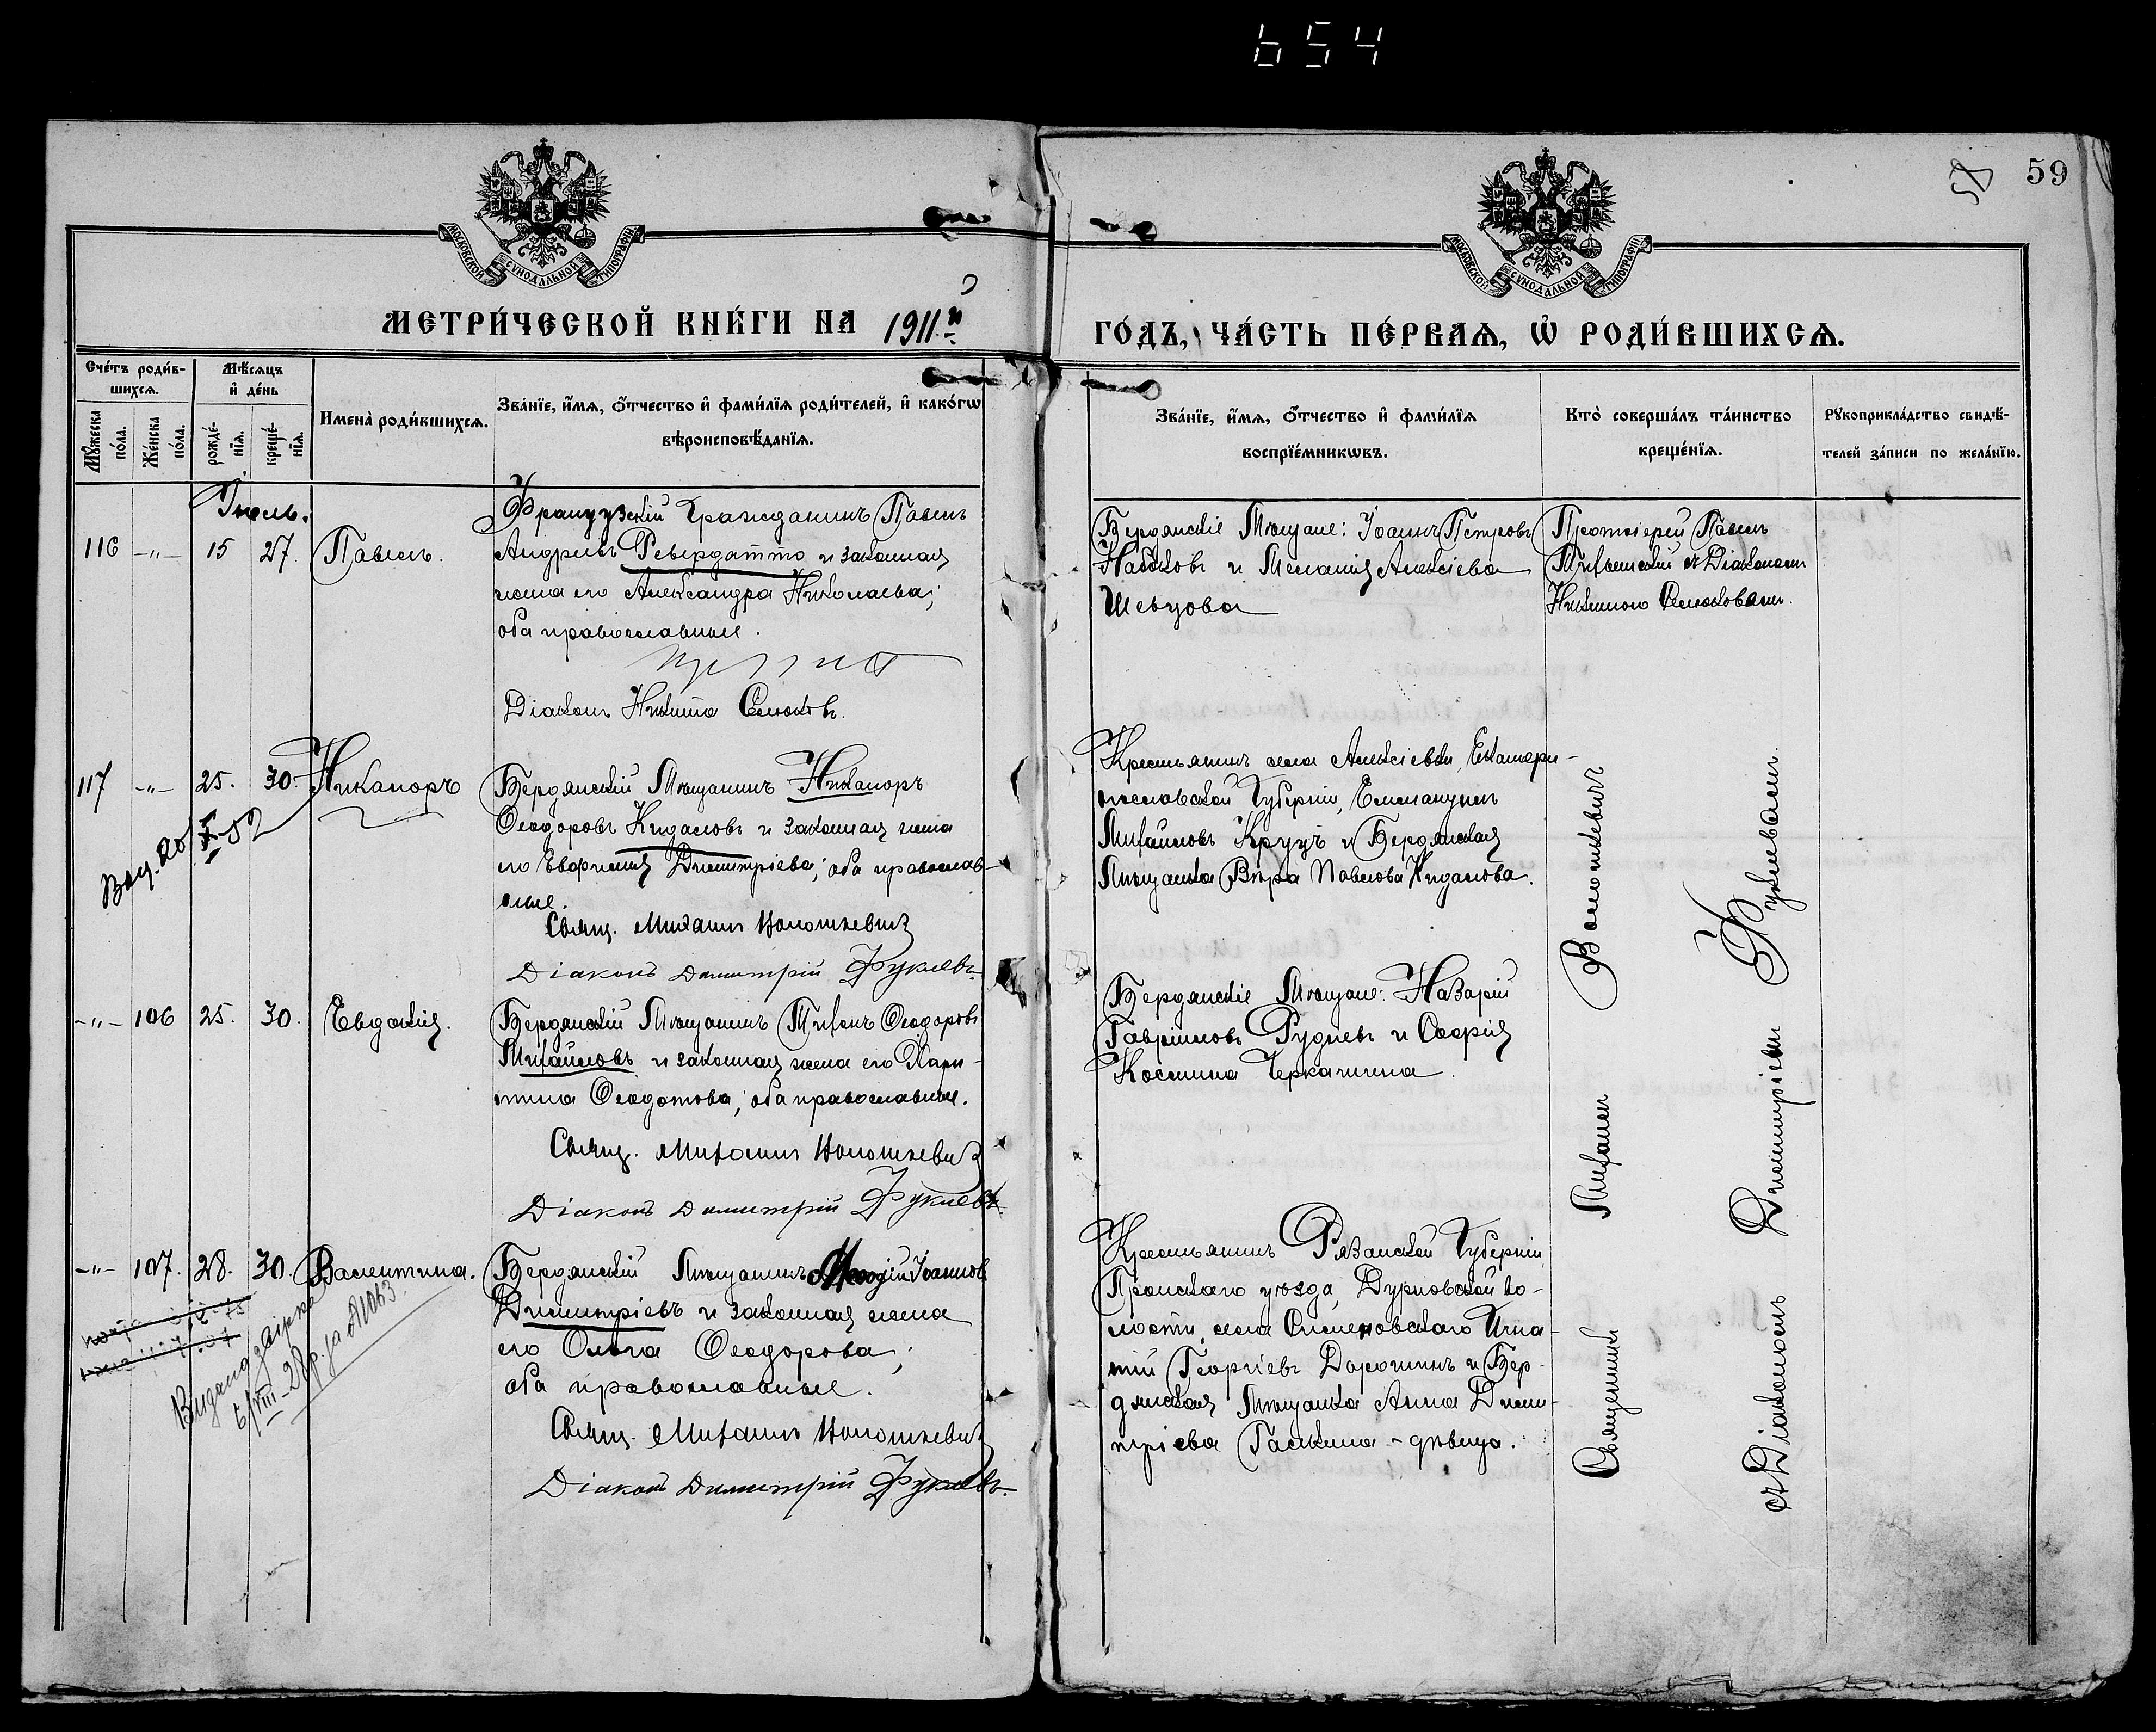 654
59
МОСКОВСКОЙ СѴНОДАЛЬНОЙ ТИПОГРАФІИ
МОСКОВСКОЙ СѴНОДАЛЬНОЙ ТИПОГРАФІИ
МЕТРИ́ЧЕСКОЙ КНИ́ГИ НА 1911.й
ГО́ДЪ, ЧА́СТЬ ПЕ́РВАѦ, Ѡ҆ РОДИ́ВШИХСѦ.
Сче́тъ роди́в-
шихсѧ.
Мꙋ́жеска по́ла.
Же́нска по́ла.
Мѣ́сѧцъ
и҆ де́нь
рожде́-
нїѧ.
креще́-
нїѧ.
Имена̀ роди́вшихсѧ.
Зва́нїе, и҆́мѧ, ѻ҆́тчество и҆ фами́лїѧ роди́телей, и҆ како́гѡ
вѣроисповѣ́данїѧ.
Зва́нїе, и҆́мѧ, ѻ҆́тчество и҆ фами́лїѧ
воспрїе́мникѡвъ.
Кто̀ соверша́лъ та́инство
креще́нїѧ.
Рꙋкоприкла́дство свидѣ́-
телей за́писи по жела́нїю.
Іюль.
116 -"- 15 27. Павелъ.
Французскій Гражданинъ Павелъ
Андреевъ Ревердатто и законная
жена его Александра Николаева;
оба православные.
Діаконъ Никита Селюковъ.
Бердянскіе Мѣщане: Іоаннъ Петровъ
Набоковъ и Меланія Алексіева
Шевцова
Протоіерей Павелъ
съ Діакономъ
Никитою Селюковымъ.
117 -"- 25. 30. Никаноръ
Бердянскій Мѣщанинъ Никаноръ
Ѳеодоровъ Кидаловъ и законная жена
его Евфимія Димитріева; оба православ-
ные.
Свящ. Михаилъ Волошкевичъ
Діаконъ Димитрій Фуклевъ
X-52
Крестьянинъ села Алексіевки, Екатери-
нославской Губерніи, Еммануилъ
Михайловъ Круцъ и Бердянская
Мѣщанка Вѣра Павлова Кидалова.
-"- 106 25. 30. Евдокія.
Бердянскій Мѣщанинъ Тихонъ Ѳеодоровъ
Михайловъ и законная жена его Хари-
тина Ѳеодотова; оба православные.
Свящ. Михаилъ Волошкевичъ
Діаконъ Димитрій Фуклевъ.
Бердянскіе Мѣщане: Назарій
Гавріиловъ Рудневъ и Софія
Космина Черкашина.
-"- 107. 28. 30. Валентина.
Бердянскій Мѣщанинъ Меѳодій Іоанновъ
Димитріевъ и законная жена
его Ольга Ѳеодорова;
оба православные.
Свящ. Михаилъ Волошкевичъ
Діаконъ Димитрій Фуклевъ.
Крестьянинъ Рязанской Губерніи
Пронскаго уѣзда, Дурновской во-
лости, села Семеновскаго Игна-
тій Георгіевъ Дорошинъ и Бер-
дянская Мѣщанка Анна Дими-
тріева Галкина - дѣвица.
Священникъ Михаилъ Волошкевичъ
съ Діакономъ Димитріемъ Фуклевымъ.